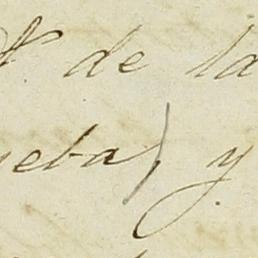 de la
ueba, y